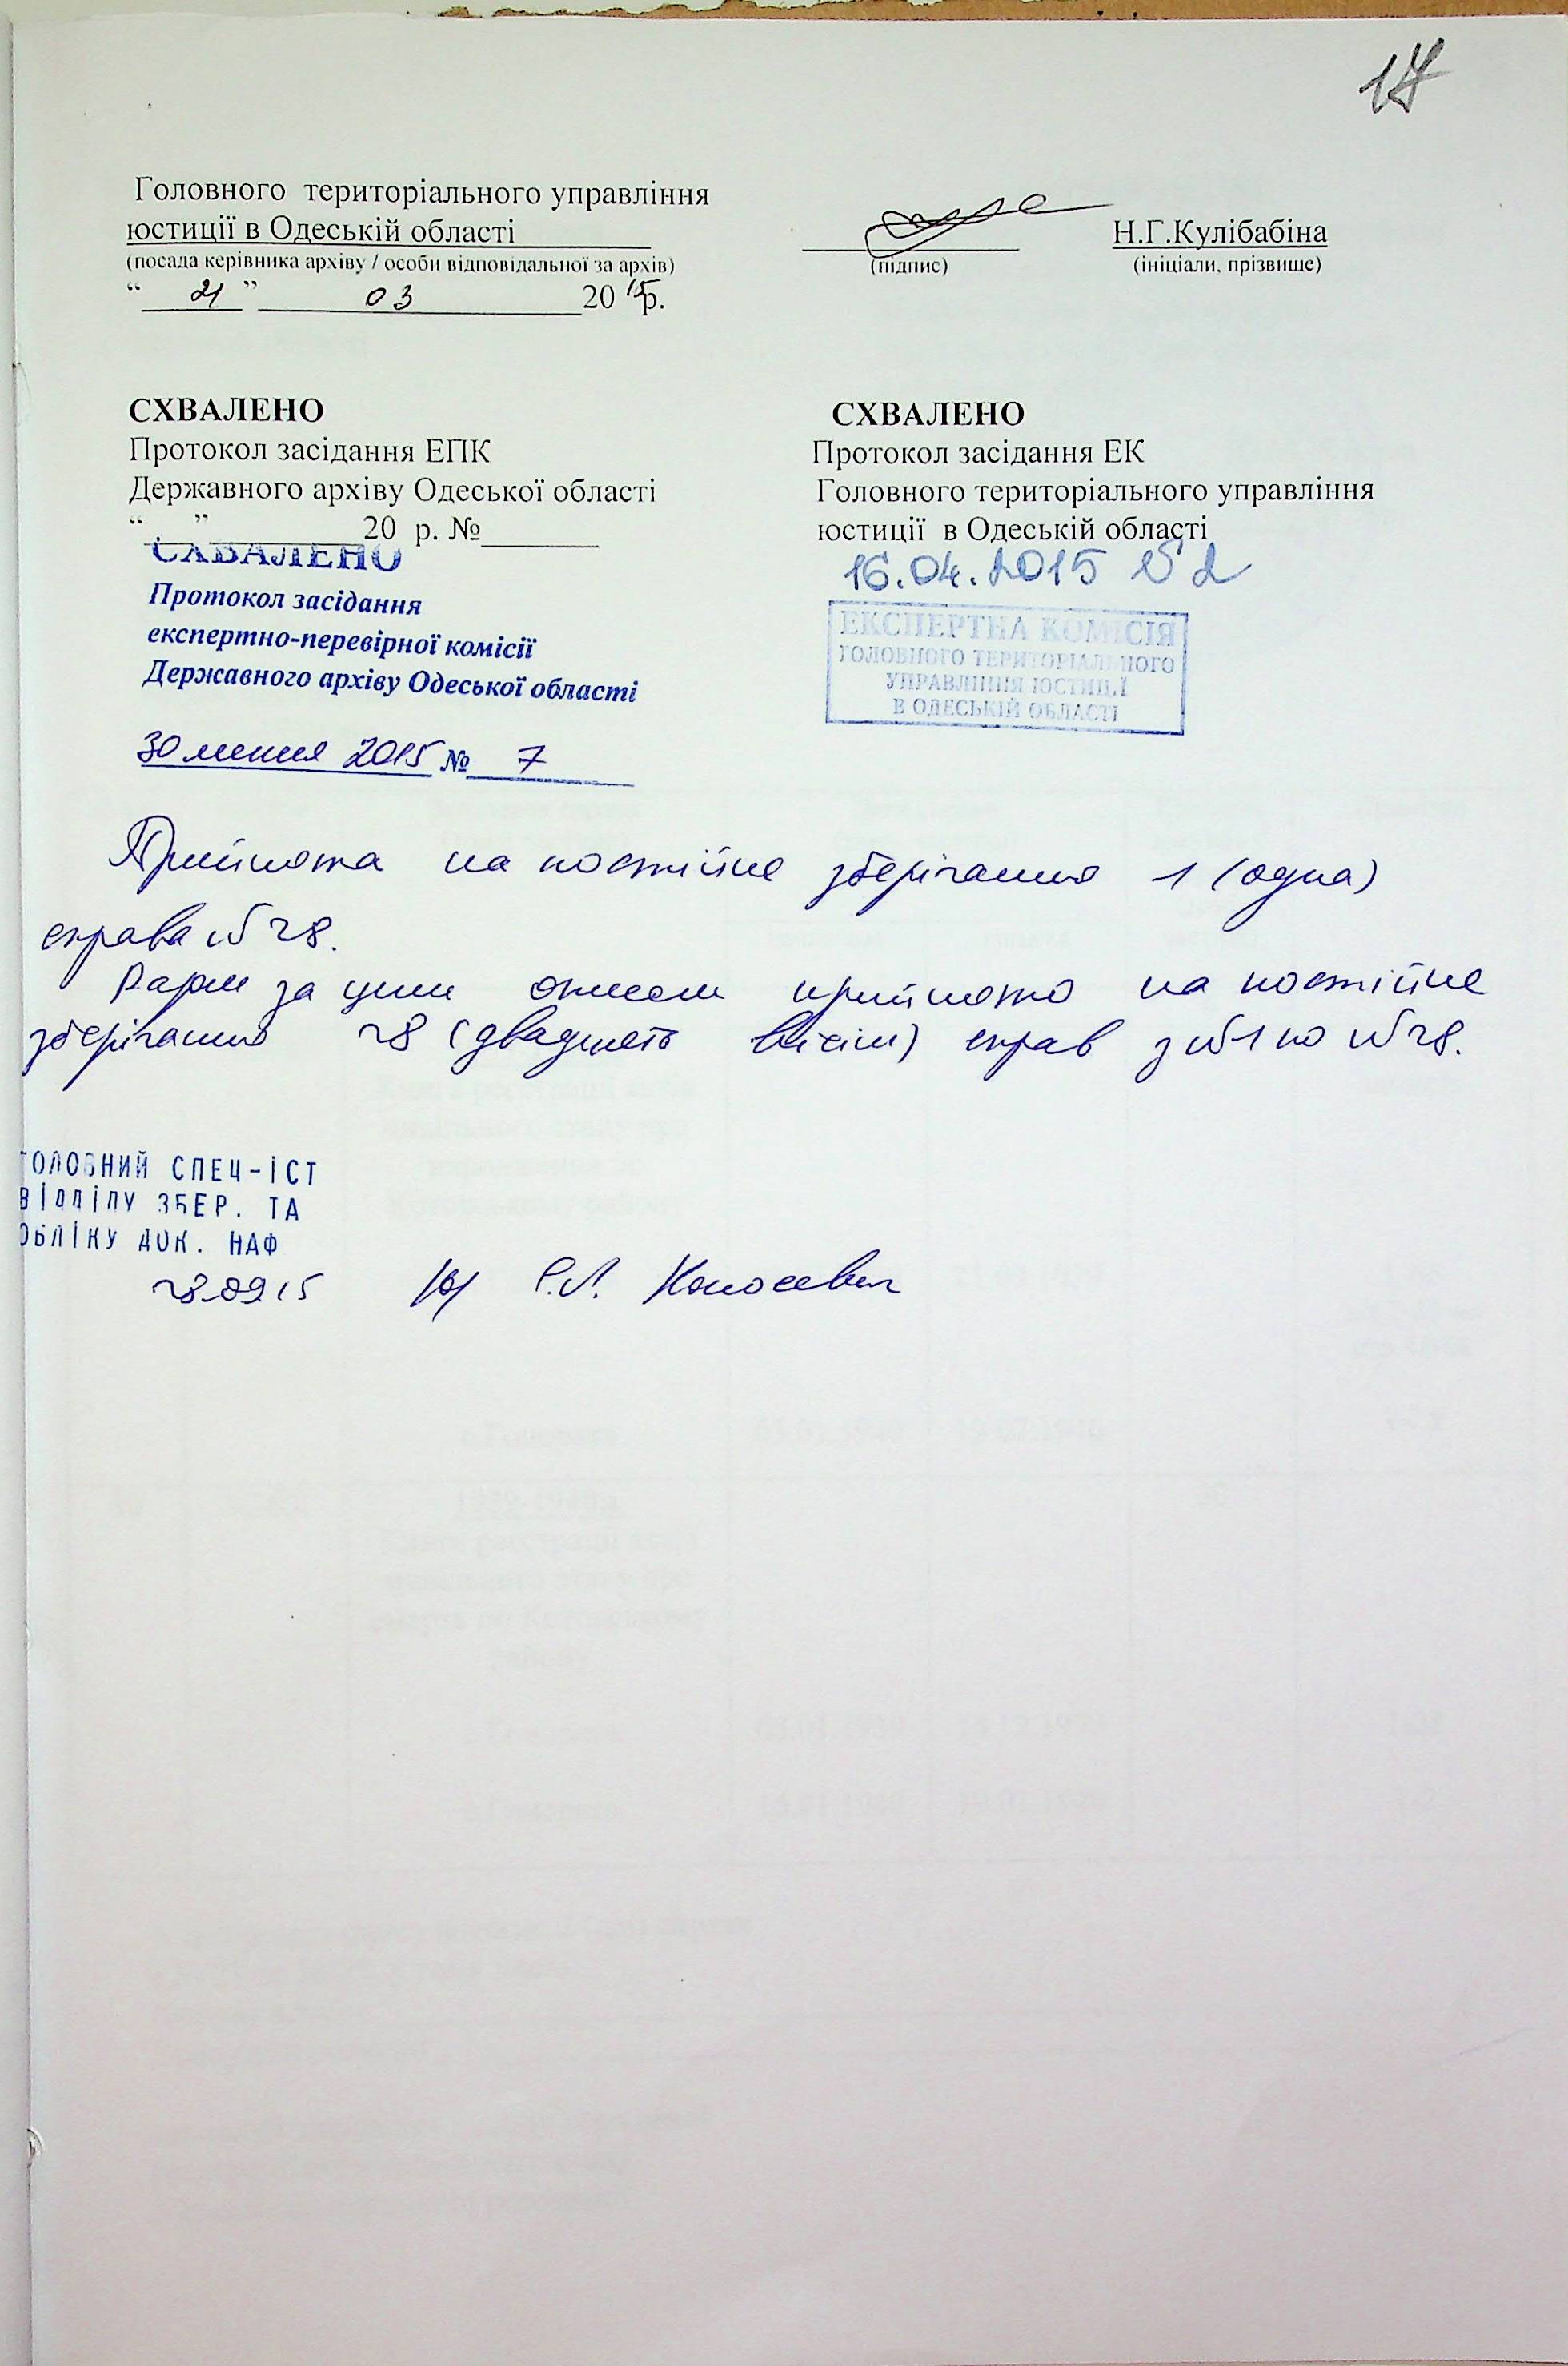 17
Головного територіального управління
юстиції в Одеській області Н.Г.Кулібабіна
(посада керівника архіву / особи відповідальної за архів) (підпис) (ініціали, прізвище)
“ 21 ” 03 2015р.
СХВАЛЕНО
Протокол засідання ЕПК
Державного архіву Одеської області
“ ” 20 р. №
СХВАЛЕНО
Протокол засідання
експертно-перевірної комісії
Державного архіву Одеської області
30 липня 2015 № 7
СХВАЛЕНО
Протокол засідання ЕК
Головного територіального управління
юстиції в Одеській області
16.04.2015 № 2
ЕКСПЕРТНА КОМІСІЯ
ГОЛОВНОГО ТЕРИТОРІАЛЬНОГО
УПРАВЛІННЯ ЮСТИЦІЇ
В ОДЕСЬКІЙ ОБЛАСТІ
Прийнята на постійне зберігання 1 (одна)
справа № 28.
Разом за цим описом прийнято на постійне
зберігання 28 (двадцять вісім) справ з №1 по №28.
ГОЛОВНИЙ СПЕЦ-ІСТ
ВІДДІЛУ ЗБЕР. ТА
ОБЛІКУ ДОК. НАФ
28.09.15